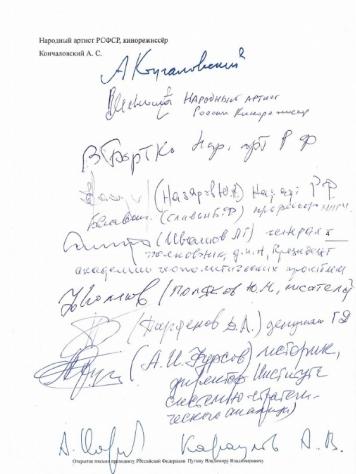 Народный артист РСФСР, кинорежиссёр
Кончаловский А. С.
А Кончаловский
Народный артист
России кинорежиссер
В Бортко Нар. арт РФ
(Назаров Ю.В) Нар. арт РФ
(Славин Б.Ф) профессор
(Ивашов Л Г) генерал
полковник, д.и.н, президент
академии геополитических проблем
(Поляков Ю.М, писатель)
(Парфенов Д.А.) депутат ГД
(А.И. Фурсов) историк,
директор Института
системно-стратеги-
ческого анализа)
Караулов А. В.
Открытое письмо президенту Российской Федерации Путину Владимиру Владимировичу